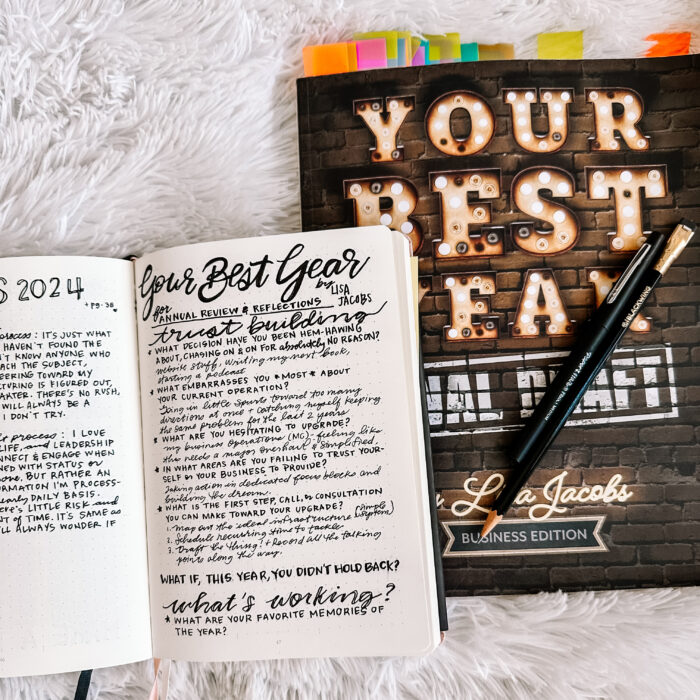 S 2024
+ PG. 38
rocess : IT'S JUST WHAT
HAVEN'T FOUND THE
N'T KNOW ANYONE WHO
ACH THE SUBJECT,
EERING TOWARD MY
TURING IS FIGURED OUT,
ARTER. THERE'S NO RUSH,
WILL ALWAYS BE A
I DON'T TRY.
process : I LOVE
LIFE, and LEADERSHIP
NNECT & ENGAGE WHEN
NED WITH STATUS or
ne. BUT RATHER AN
ORMATION I'M PROCESS-
early DAILY BASIS.
ERE'S LITTLE RISK and
NT OF TIME. IT'S SAME as
LL ALWAYS WONDER IF
Your Best Year
by LISA JACOBS
for ANNUAL REVIEW & REFLECTIONS
trust building
* WHAT DECISION HAVE YOU BEEN HEM-HAWING
ABOUT, CHASING ON & ON FOR absolutely NO REASON?
website stuff, writing my next book,
starting a podcast
* WHAT EMBARRASSES YOU *MOST* ABOUT
YOUR CURRENT OPERATION?
Going in little spurts toward too many
directions at once + catching myself keeping
the same problem for the last 2 years
* WHAT ARE YOU HESITATING TO UPGRADE?
my business operations (MG). feeling like
this needs a major overhaul & simplified.
* IN WHAT AREAS ARE YOU FAILING TO TRUST YOUR-
SELF or YOUR BUSINESS TO PROVIDE?
Taking action in dedicated focus blocks and
building the dream.
* WHAT IS THE FIRST STEP, CALL, or CONSULTATION
YOU CAN MAKE TOWARD YOUR UPGRADE?
1. Map out the ideal infrastructure (simple
2. Schedule recurring time to tackle
3. Draft the thing! + Record all the talking
points along the way.
WHAT IF, THIS YEAR, YOU DIDN'T HOLD BACK?
what's working?
* WHAT ARE YOUR FAVORITE MEMORIES OF
THE YEAR?
YOUR
BEST
EAR
Lisa Jacobs
BUSINESS EDITION
BLACKWING